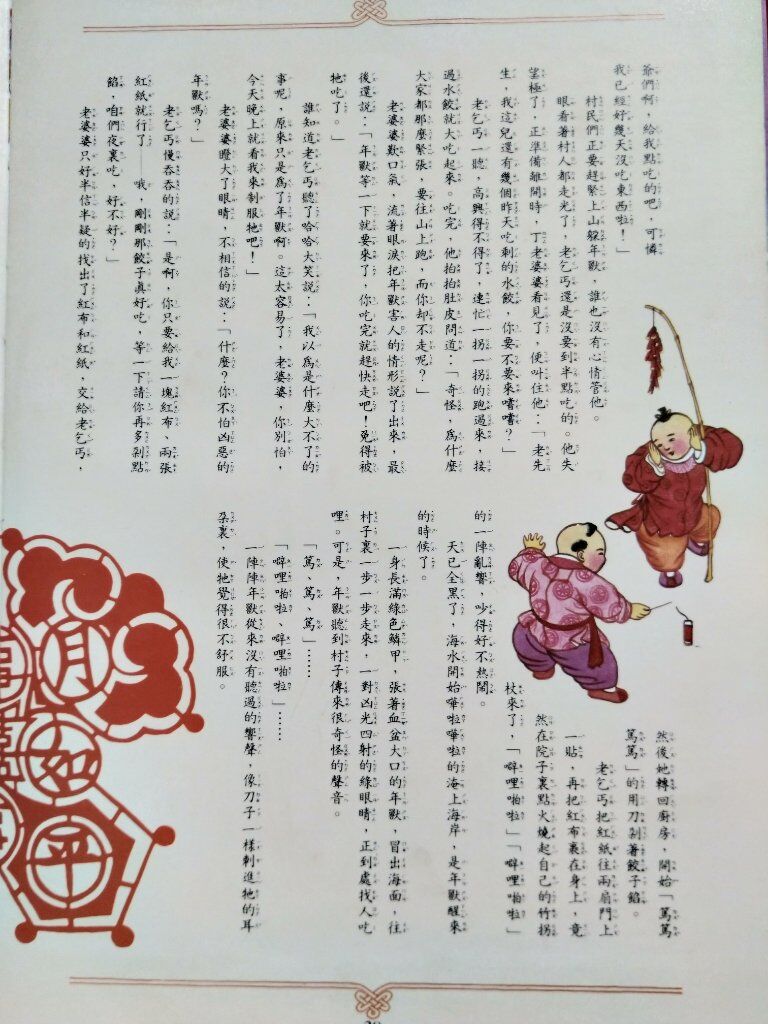 爺們啊，給我點吃的吧，可憐
我已經好幾天沒吃東西啦！」
村民們正要趕緊上山躲年獸，誰也沒有心情管他。
眼看著村人都走光了，老乞丐還是沒要到半點吃的。他失
望極了，正準備離開時，丁老婆婆看見了，便叫住他：「老先
生，我這兒還有幾個昨天吃剩的水餃，你要不要來嚐嚐？」
老乞丐一聽，高興得不得了，連忙一拐一拐的跑過來，接
過水餃就大吃起來。吃完，他拍拍肚皮問道：「奇怪，為什麼
大家都那麼緊張，要往山上跑，而你却不走呢？」
老婆婆歎口氣，流着眼淚把年獸害人的情形說了出來，最
後還說：「年獸等一下就要來了，你吃完就趕快走吧！免得被
牠吃了。」
誰知道老乞丐聽了哈哈大笑說：「我以為是什麼大不了的
事呢，原來只是為了年獸啊。這太容易了，老婆婆，你別怕，
今天晚上就看我來制服牠吧！」
老婆婆瞪大了眼睛，不相信的說：「什麼？你不怕凶惡的
年獸嗎？」
老乞丐慢吞吞的說：「是啊，你只要給我一塊紅布、兩張
紅紙就行了——哦，剛剛那餃子真好吃，等一下請你再多剁點
餡，咱們夜裏吃，好不好？」
老婆婆只好半信半疑的找出了紅布和紅紙，交給老乞丐，
然後她轉回廚房，開始「篤篤
篤篤」的用刀剁著餃子餡。
老乞丐把紅紙往兩扇門上
一貼，再把紅布裹在身上，竟
然在院子裏點火燒起自己的竹拐
杖來了，「噼哩啪啦」「噼哩啪啦」
的一陣亂響，吵得好不熱鬧。
天已全黑了，海水開始嘩啦嘩啦的淹上海岸，是年獸醒來
的時候了。
一身長滿綠色鱗甲，張著血盆大口的年獸，冒出海面，往
村子裏一步一步走來，一對凶光四射的綠眼睛，正到處找人吃
哩。可是，年獸聽到村子傳來很奇怪的聲音。
「篤、篤、篤」……
「噼哩啪啦、噼哩啪啦」……
一陣陣年獸從來沒有聽過的響聲，像刀子一樣刺進牠的耳
朵裏，使牠覺得很不舒服。
月
如
平